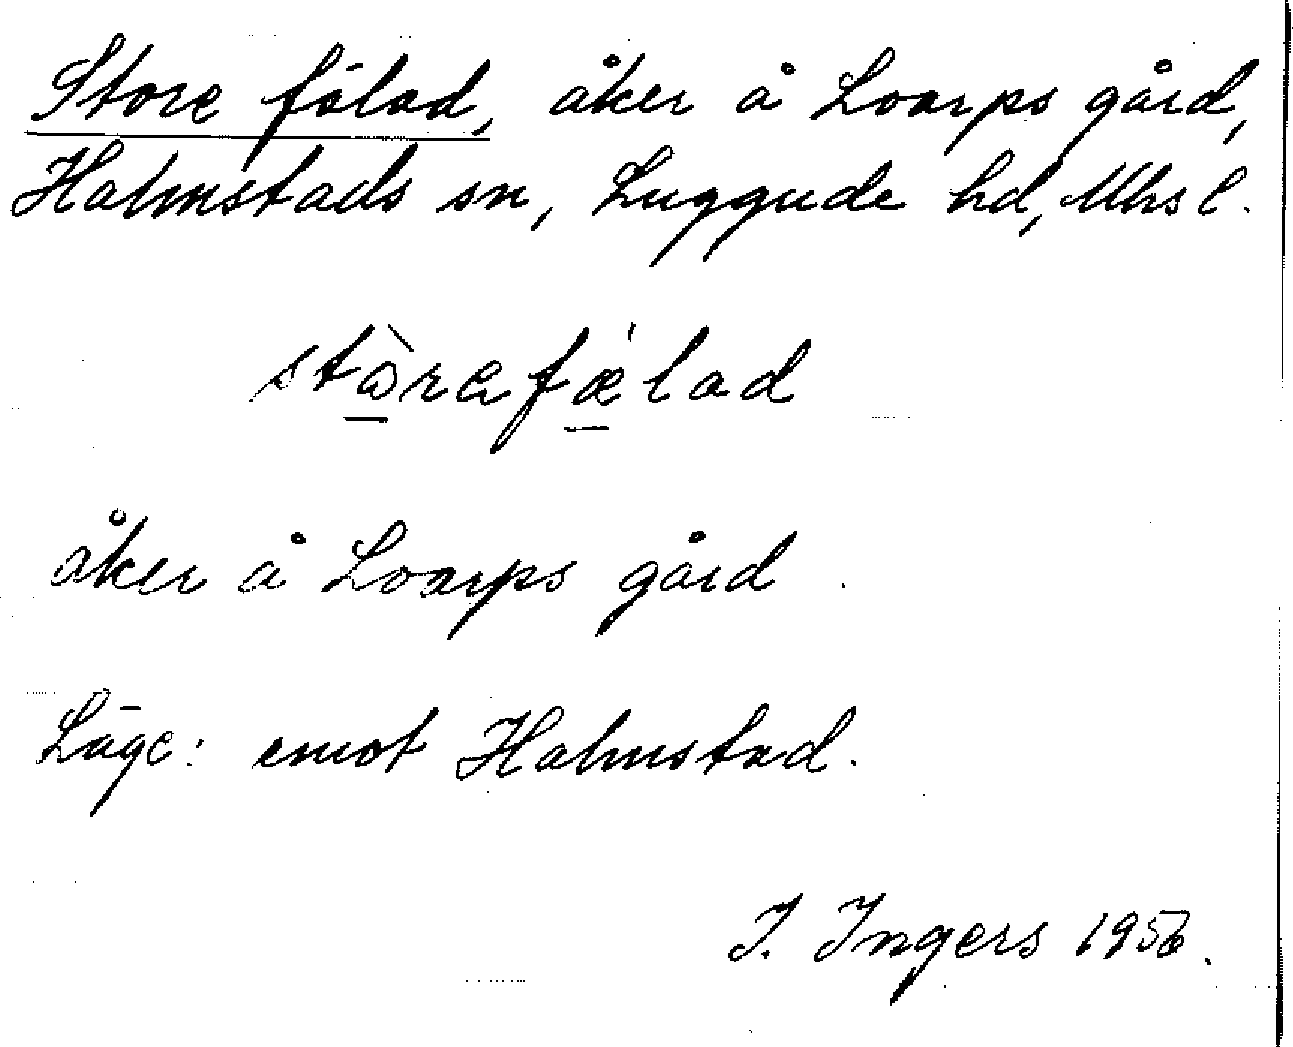 Store fälad, åker å Loarps gård,
Halmstads sn, Luggude hd, Mhs l.
stòrefǽlad
åker å Loarps gård
Läge: emot Halmstad.
I. Ingers 1956.